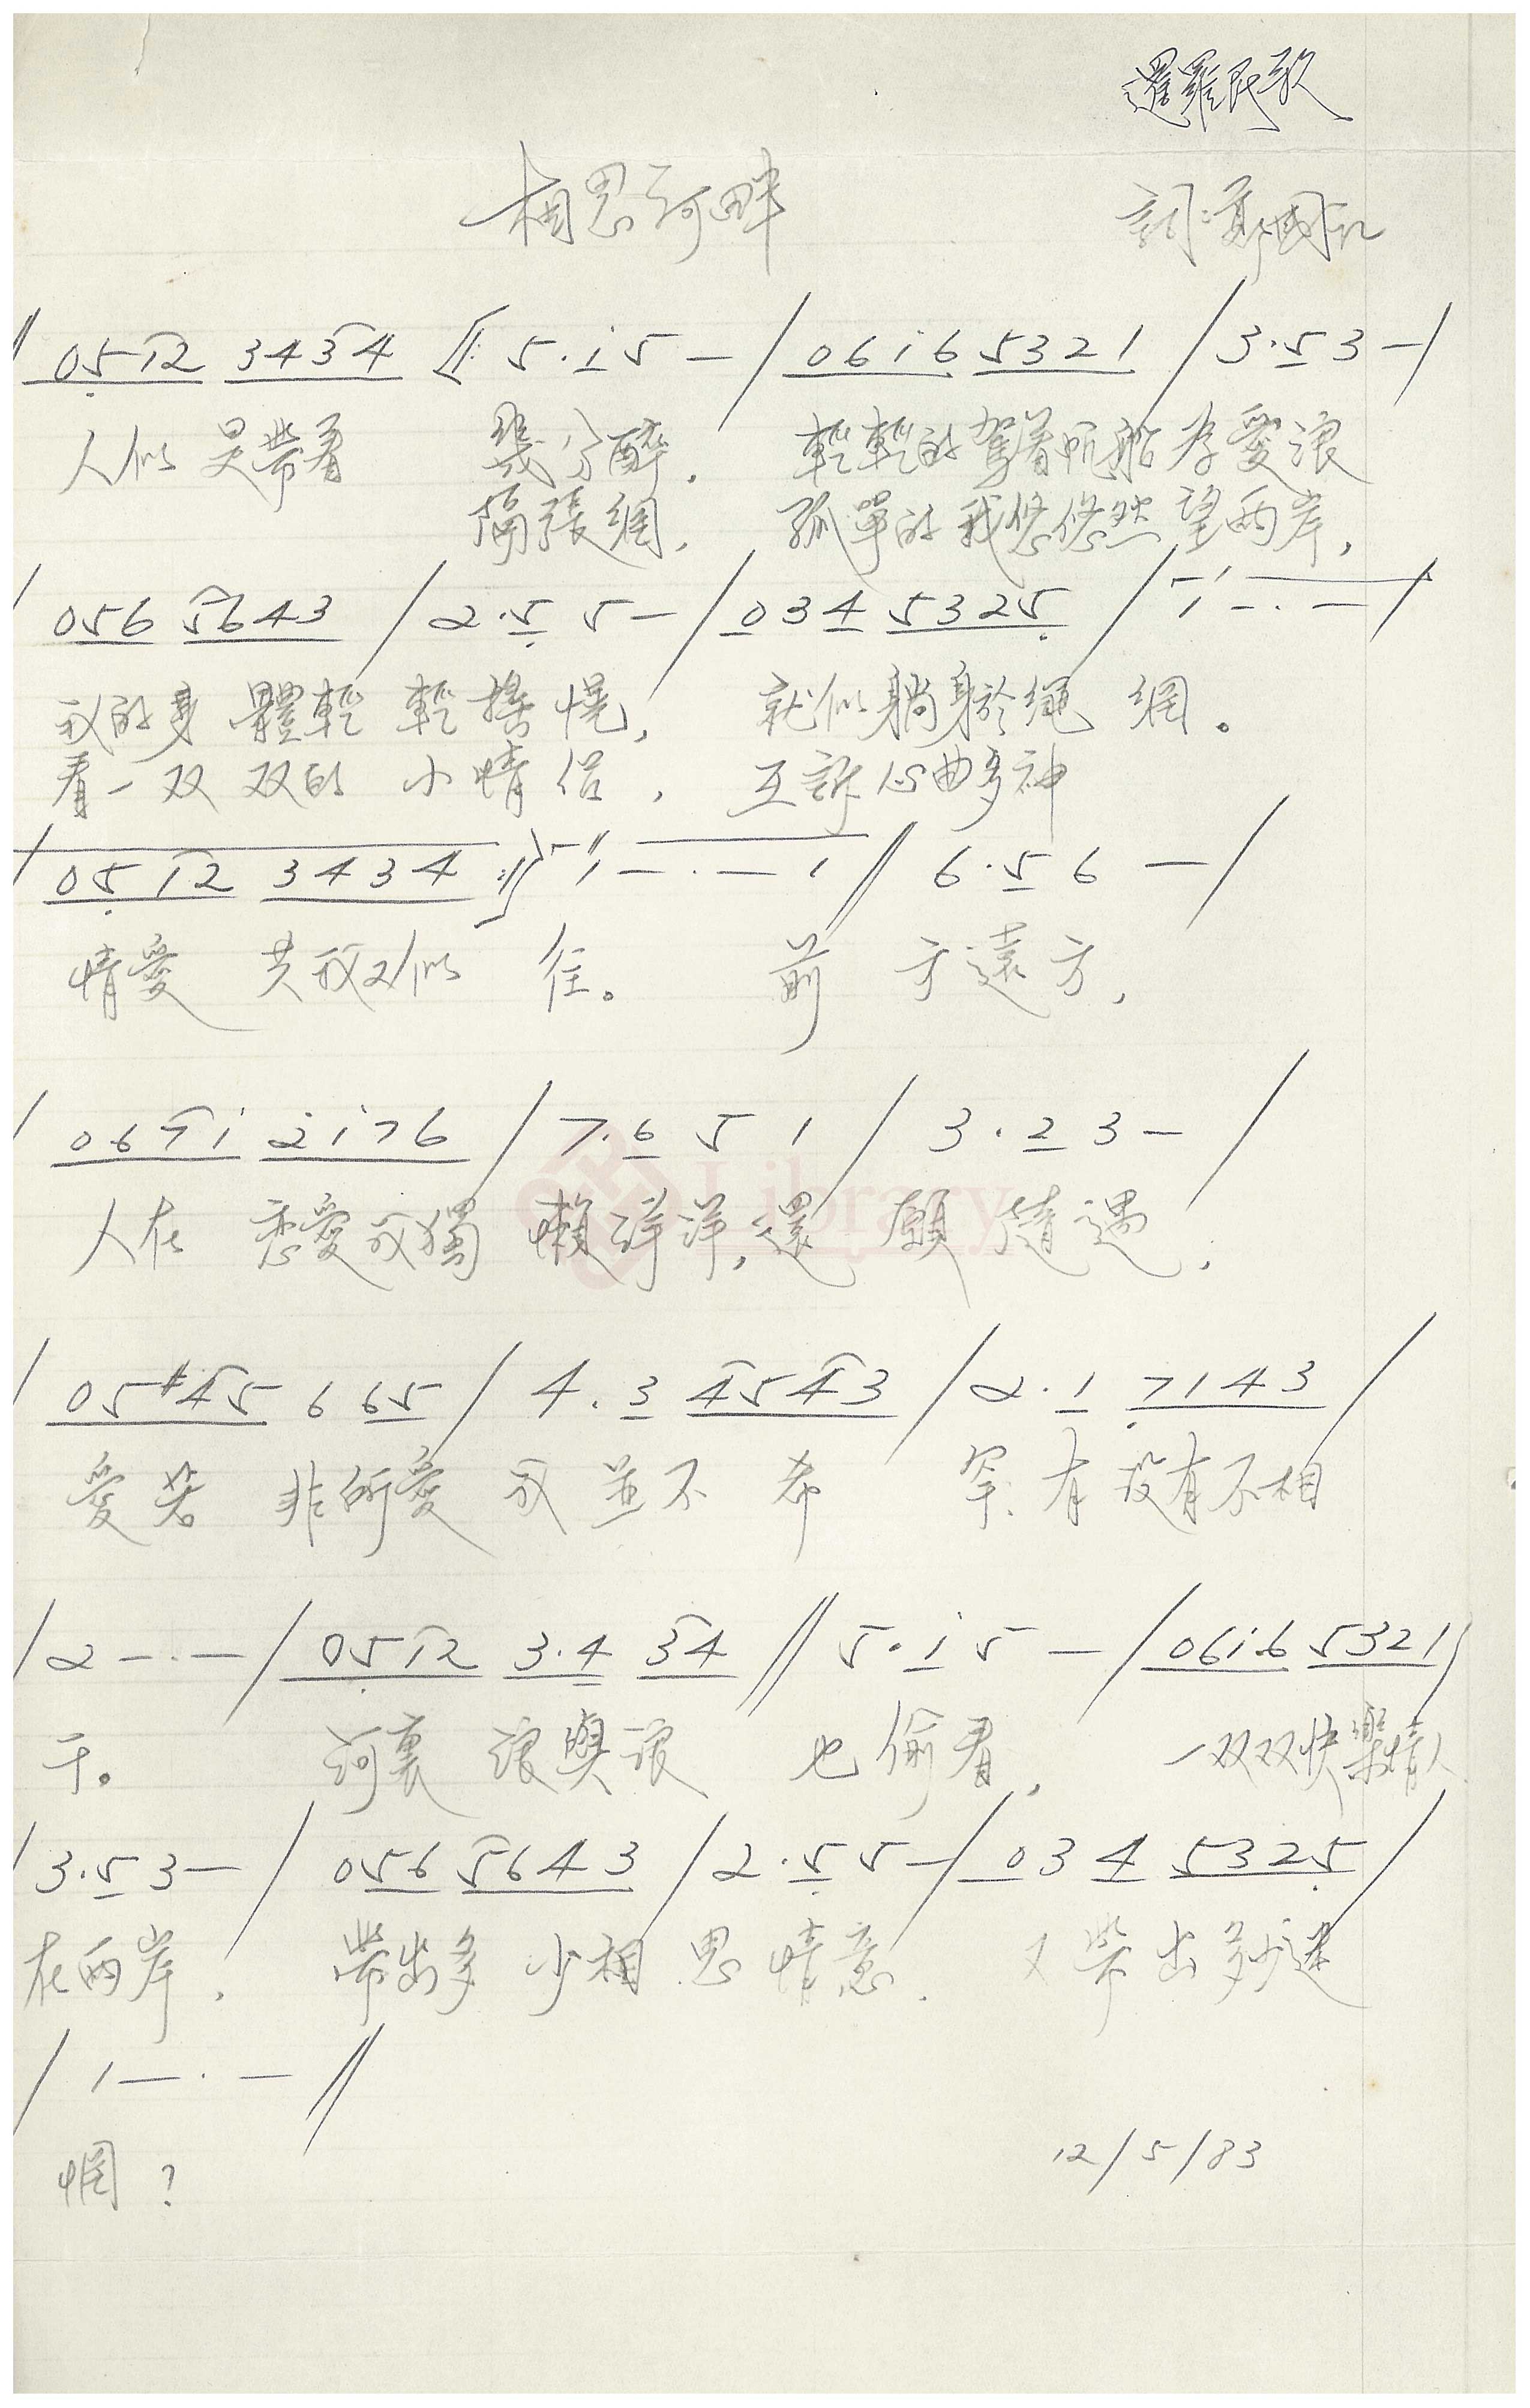 暹羅民歌
相思河畔
詞:鄭國江
// 0512 3434 //: 5·i5 — / 06i6 5321 / 3·53 — /
人似是帶着 幾分醉, 輕輕的駕着帆船為愛浪
隔張網, 孤單的我悠悠然望兩岸,
/ 056 5643 / 2·5 5 — / 034 5325 / 1 — · — /
我的身體輕輕搖幌, 就似躺身於繩網。
看一双双的小情侶, 互訴心曲多神
/ 0512 3434 :// 1 — · — 1 // 6·56 — /
情愛 共我又似 往。 前 方遠方,
/ 067i 2i76 / 7·6 5 1 / 3·23 — /
人在 戀愛我獨 懶洋洋,還 願 隨遇,
/ 05#45 6 65 / 4·3 4543 / 2·1 7143 /
愛若 非所愛 我並不 希 罕,有没有不相
/ 2 — · — / 0512 3·4 34 // 5·i5 — / 06i6 5321 /
干。 河裏 浪與浪 也偷看, 一双双快樂情人
/ 3·53 — / 056 5643 / 2·55 — / 034 5325 /
在兩岸, 帶出多少相思情意, 又帶出多少迷
/ 1 — · — //
惘?
12/5/83
Library